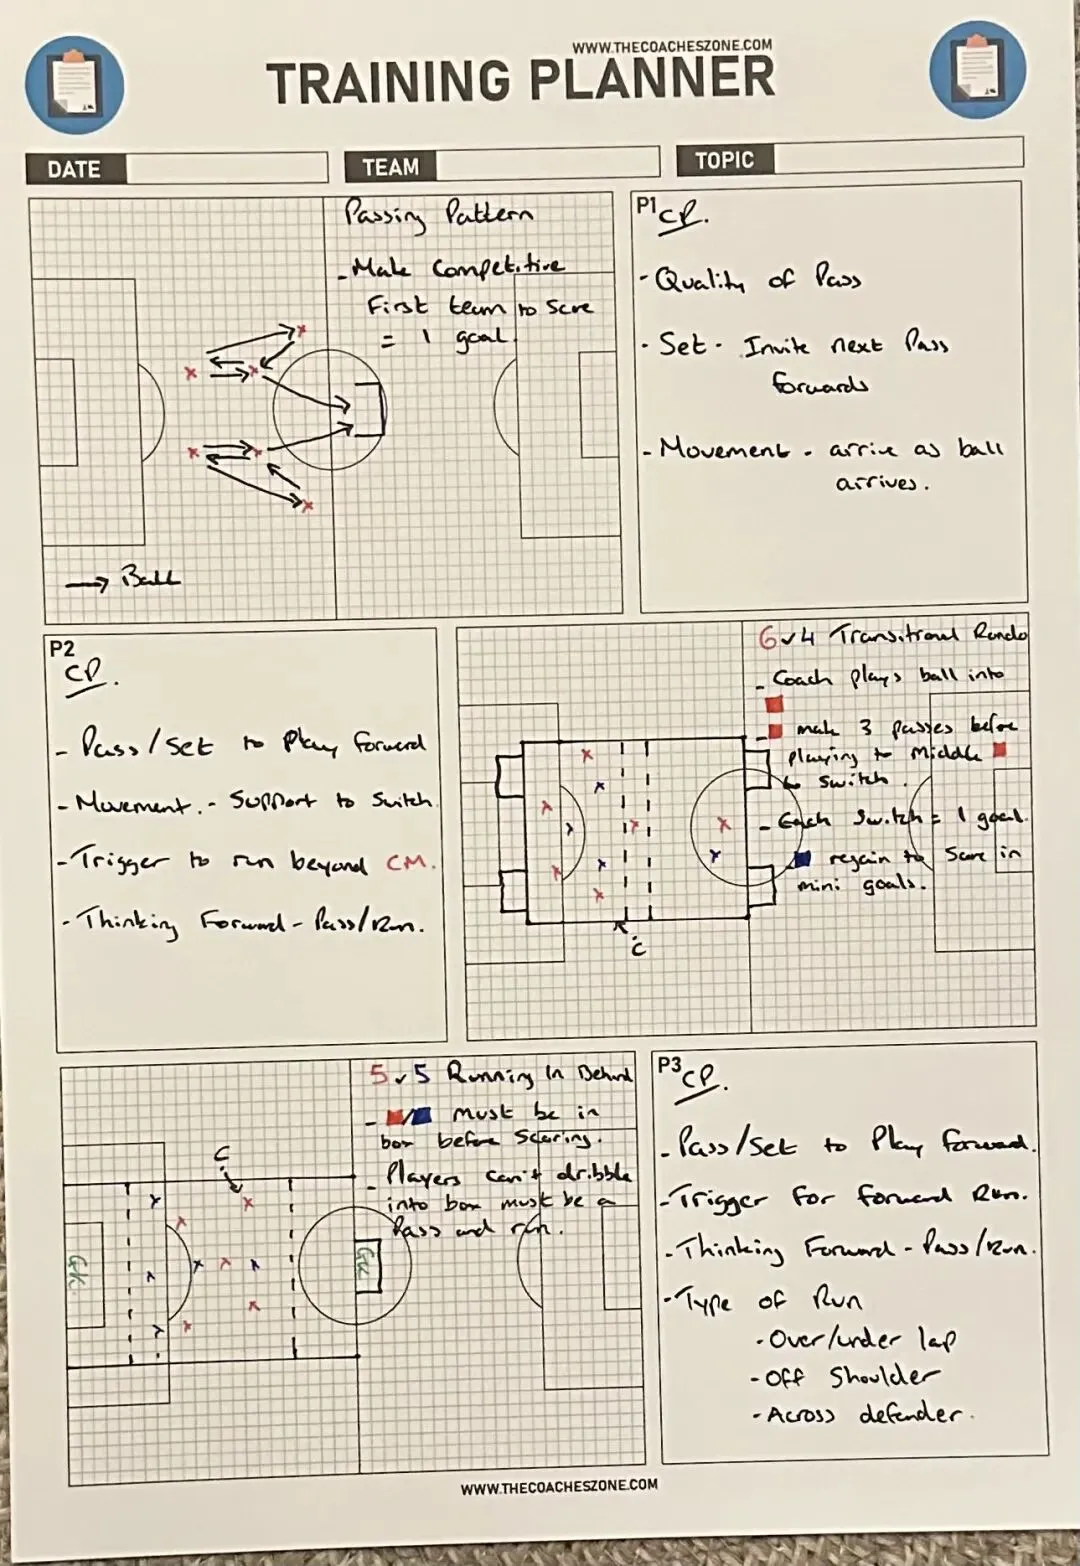 WWW.THECOACHESZONE.COM
TRAINING PLANNER
DATE
TEAM
TOPIC
Passing Pattern
- Make Competitive
First team to Score
= 1 goal.
→ Ball
P1 CP.
- Quality of Pass
- Set - Invite next Pass
forwards
- Movement - arrive as ball
arrives.
P2
CP.
- Pass/Set to Play forward
- Movement. - Support to Switch.
- Trigger to run beyond CM.
- Thinking Forward - Pass/Run.
6v4 Transitional Rondo
- Coach plays ball into
- make 3 passes before
playing to Middle
to switch.
- Each Switch = 1 goal.
regain to Score in
mini goals.
C
5v5 Running In Behind
- / must be in
box before Scoring.
- Players can't dribble
into box must be a
Pass and run.
C
GK
GK
P3 CP.
- Pass/Set to Play forward.
- Trigger for forward Run.
- Thinking Forward - Pass/Run.
- Type of Run
- Over/under lap
- Off Shoulder
- Across defender.
WWW.THECOACHESZONE.COM